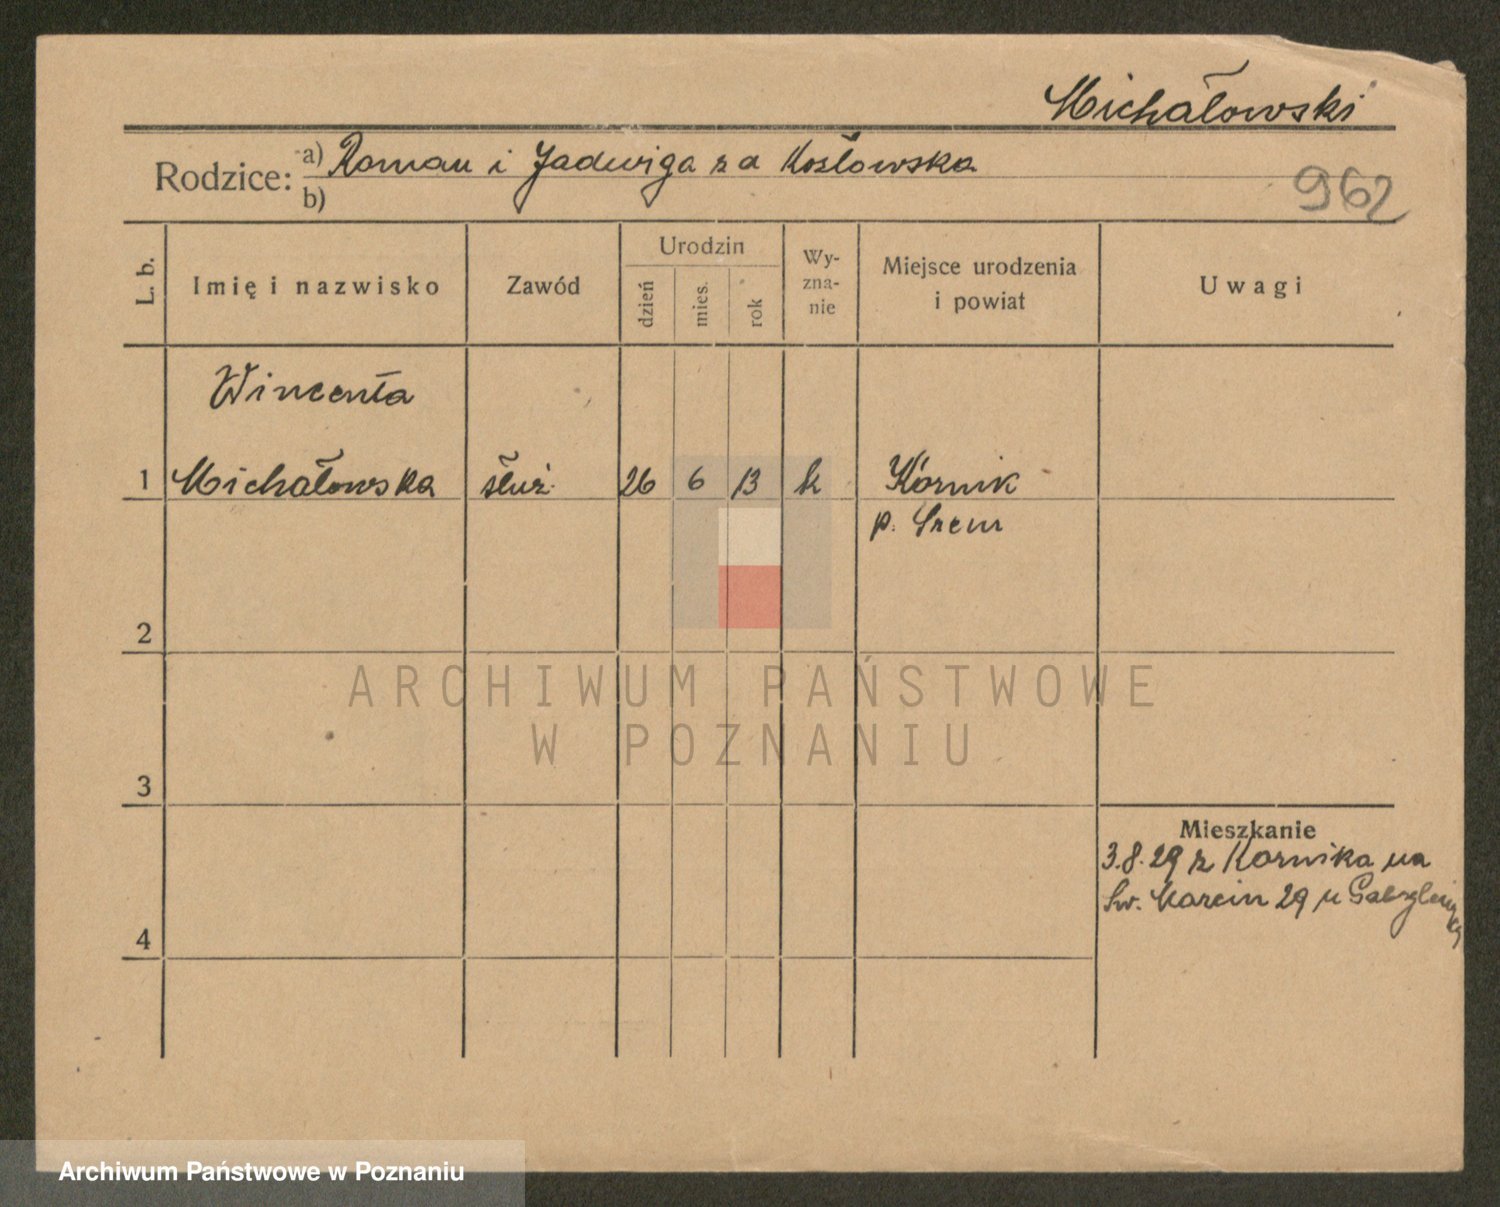 Michałowski
Rodzice: a) Roman i Jadwiga z d Kozłowska
b)
962
L. b.
Imię i nazwisko
Zawód
Urodzin
dzień
mies.
rok
Wy-
zna-
nie
Miejsce urodzenia
i powiat
Uwagi
Wincenta
1 Michałowska służ. 26 6 13 k Kórnik
p. Śrem
2
3
4
Mieszkanie
3.8.29 z Kornika na
Św. Marcin 29 u
ARCHIWUM PAŃSTWOWE
W POZNANIU
Archiwum Państwowe w Poznaniu